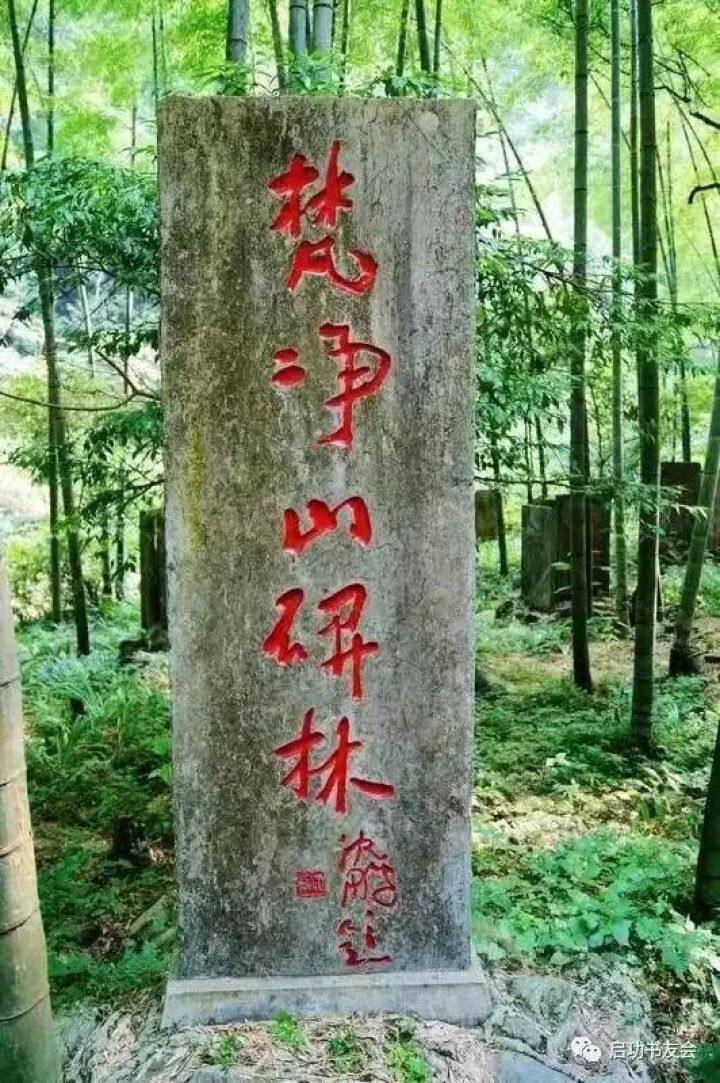 梵净山碑林
沈鹏题
启功书友会